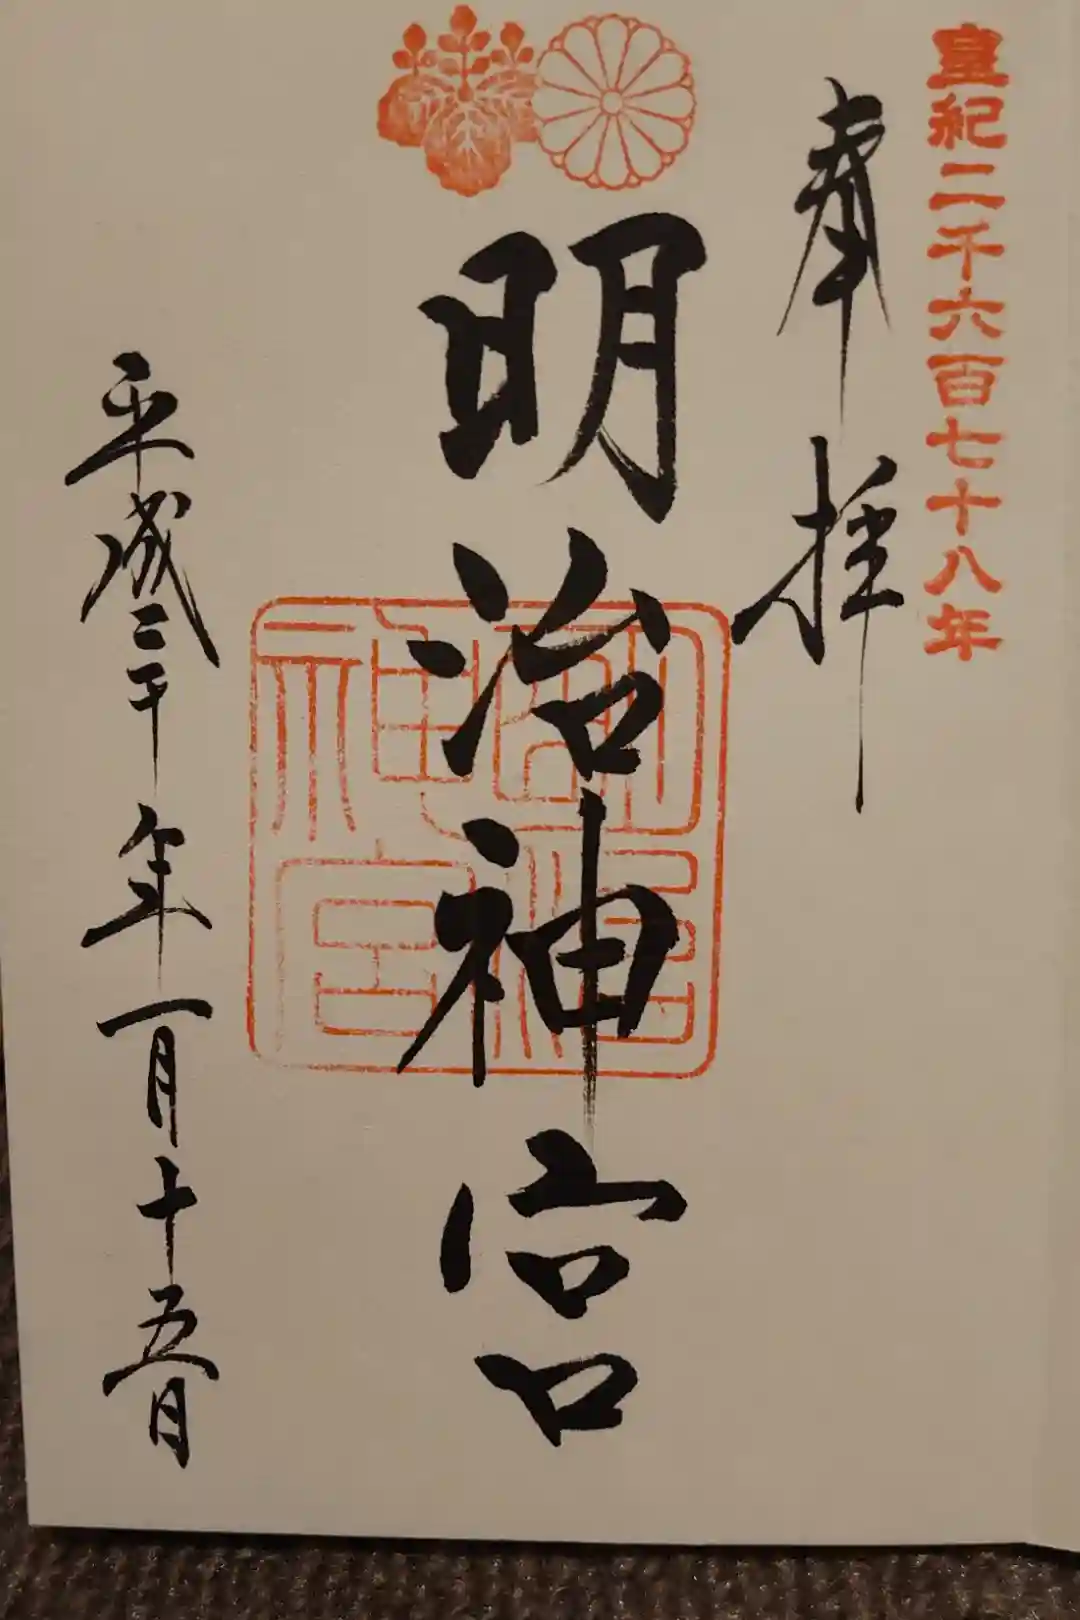 皇紀二千六百七十八年
奉拝
明治神宮
明治
神宮
平成三十年一月十五日